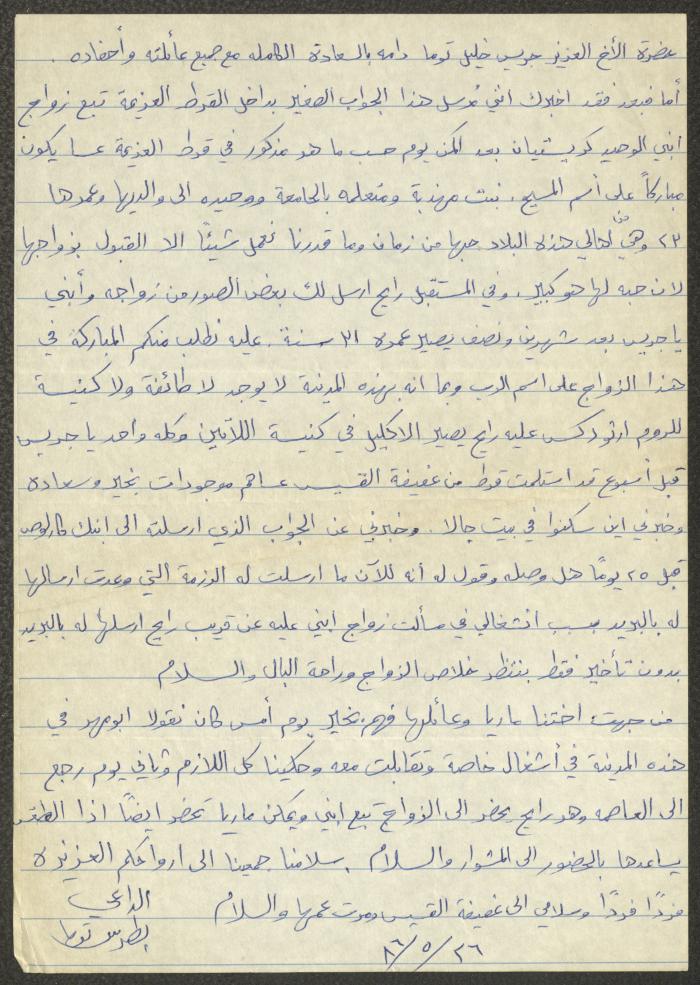 حضرة الأخ العزيز جريس خليل توما دامه بالسعادة الكامله مع جميع عائلته وأحفاده .
أما فبعد فقد اخبرك انني مُرسل هذا الجواب الصغير بداخل القرط العزيمة تبع زواج
أبني الوحيد كريستيان بعد الكمن يوم حسب ما هو مذكور في قرط العزيمة عسا يكون
مباركاً على أسم المسيح، بنت مهذبة ومتعلمه بالجامعة ووحيده الى والديها وعمرها
٢٣ وهي من اهالي هذه البلاد حبها من زمان وما قدرنا نعمل شيئاً الا القبول بزواجها
لان حبه لها هو كبير، وفي المستقبل رايح ارسل لك بعض الصور من زواجه وأبني
يا جريس بعد شهرين ونصف يصير عمره ٣١ سنة . عليه نطلب منكم المباركة في
هذا الزواج على اسم الرب وبما انه بهذه المدينة لا يوجد لا طائفة ولا كنيسة
للروم ارثودكس عليه رايح يصير الاكليل في كنيسة اللاتين وكله واحد يا جريس
قبل أسبوع قد استلمت قرط من عفيفة القسيس عساهم موجودات بخير وسعاده
وخبرني اين سكنوا في بيت جالا . وخبرني عن الجواب الذي ارسلته الى ابنك كارلوس
قبل ٢٥ يوماً هل وصله وقول له أنه للآن ما ارسلت له الرزمة التي وعدت ارسالها
له بالبريد بسبب انشغالي في مسألت زواج ابني عليه عن قريب رايح ارسلها له بالبريد
بدون تأخير فقط بننتظر خلاص الزواج وراحة البال والسلام
من جهت اختنا ماريا وعائلتها فهم بخير يوم أمس كان نقولا ابومهر في
هذه المدينة في أشغال خاصة وتقابلت معه وحكينا كل اللازم وثاني يوم رجع
الى العاصمه وهو رايح يحضر الى الزواج تبع ابني ويمكن ماريا تحضر ايضاً اذا الطقس
يساعدها بالحضور الى المشوار والسلام . سلامنا جميعنا الى ارواحكم العزيزه
فرداً فرداً وسلامي الى عفيفة القسيس ومرت عمها والسلام
الداعي
بطرس توما
٢٦/٥/٨٦